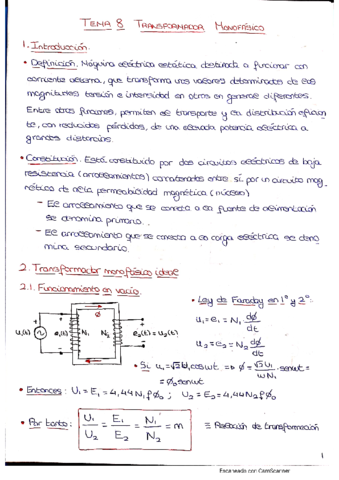 TEMA 8 TRANSFORMADOR MONOFÁSICO
1. Introducción.
• Definición. Máquina eléctrica estática destinada a funcionar con
corriente alterna, que transforma unos valores determinados de las
magnitudes tensión e intensidad en otros en general diferentes.
Entre otras funciones, permiten el transporte y la distribución eficien
te, con reducidas pérdidas, de una elevada potencia eléctrica a
grandes distancias.
• Constitución. Está constituido por dos circuitos eléctricos de baja
resistencia (arrollamientos) concatenados entre sí por un circuito mag
nético de alta permeabilidad magnética (núcleo)
- El arrollamiento que se conecta a la fuente de alimentación
se denomina primario.
- El arrollamiento que se conecta a la carga eléctrica se deno
mina secundario.
2. Transformador monofásico ideal
2.1. Funcionamiento en vacío.
• Ley de Faraday en 1º y 2º.
ø
U₁(t) e₁(t) N₁ N₂ e₂(t)=U₂(t)
u₁=e₁=N₁ dø/dt
u₂=e₂=N₂ dø/dt
• Si u₁=√2U₁coswt => ø = √2U₁/wN₁ · senwt =
= ø₀senwt
• Entonces: U₁=E₁=4,44N₁fø₀ ; U₂=E₂=4,44N₂fø₀
• Por tanto: U₁/U₂ = E₁/E₂ = N₁/N₂ = m ≡ Relación de transformación
1
Escaneado con CamScanner